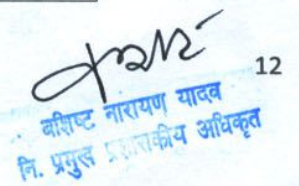 12
बशिष्ट नारायण यादव
नि. प्रमुख प्रशासकीय अधिकृत